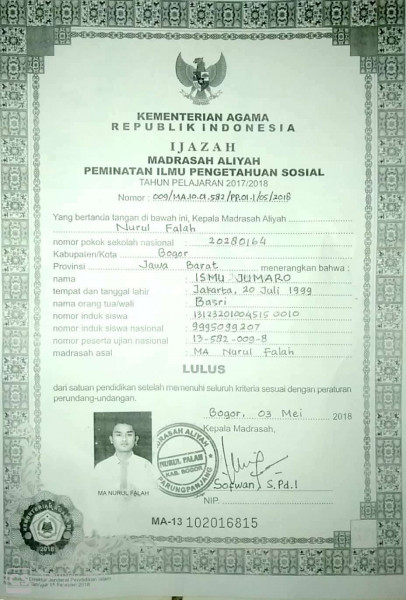 KEMENTERIAN AGAMA
REPUBLIK INDONESIA
IJAZAH
MADRASAH ALIYAH
PEMINATAN ILMU PENGETAHUAN SOSIAL
TAHUN PELAJARAN 2017/2018
Nomor : 009/MA.10.01.582/PP.01-1/05/2018
Yang bertanda tangan di bawah ini, Kepala Madrasah Aliyah
Nurul Falah
nomor pokok sekolah nasional : 20280164
Kabupaten/Kota : Bogor
Provinsi : Jawa Barat menerangkan bahwa :
nama : ISMU JUMARO
tempat dan tanggal lahir : Jakarta, 20 Juli 1999
nama orang tua/wali : Basri
nomor induk siswa : 131232010045150010
nomor induk siswa nasional : 9995099207
nomor peserta ujian nasional : 13-582-009-8
madrasah asal : MA Nurul Falah
LULUS
dari satuan pendidikan setelah memenuhi seluruh kriteria sesuai dengan peraturan
perundang-undangan.
Bogor, 03 Mei 2018
Kepala Madrasah,
MADRASAH ALIYAH
NURUL FALAH
KAB. BOGOR
PARUNGPANJANG
Sofwan, S.Pd.I
NIP.
MA NURUL FALAH
MA-13 102016815
KEMENTERIAN
2018
Direktur Jenderal Pendidikan Islam
2018